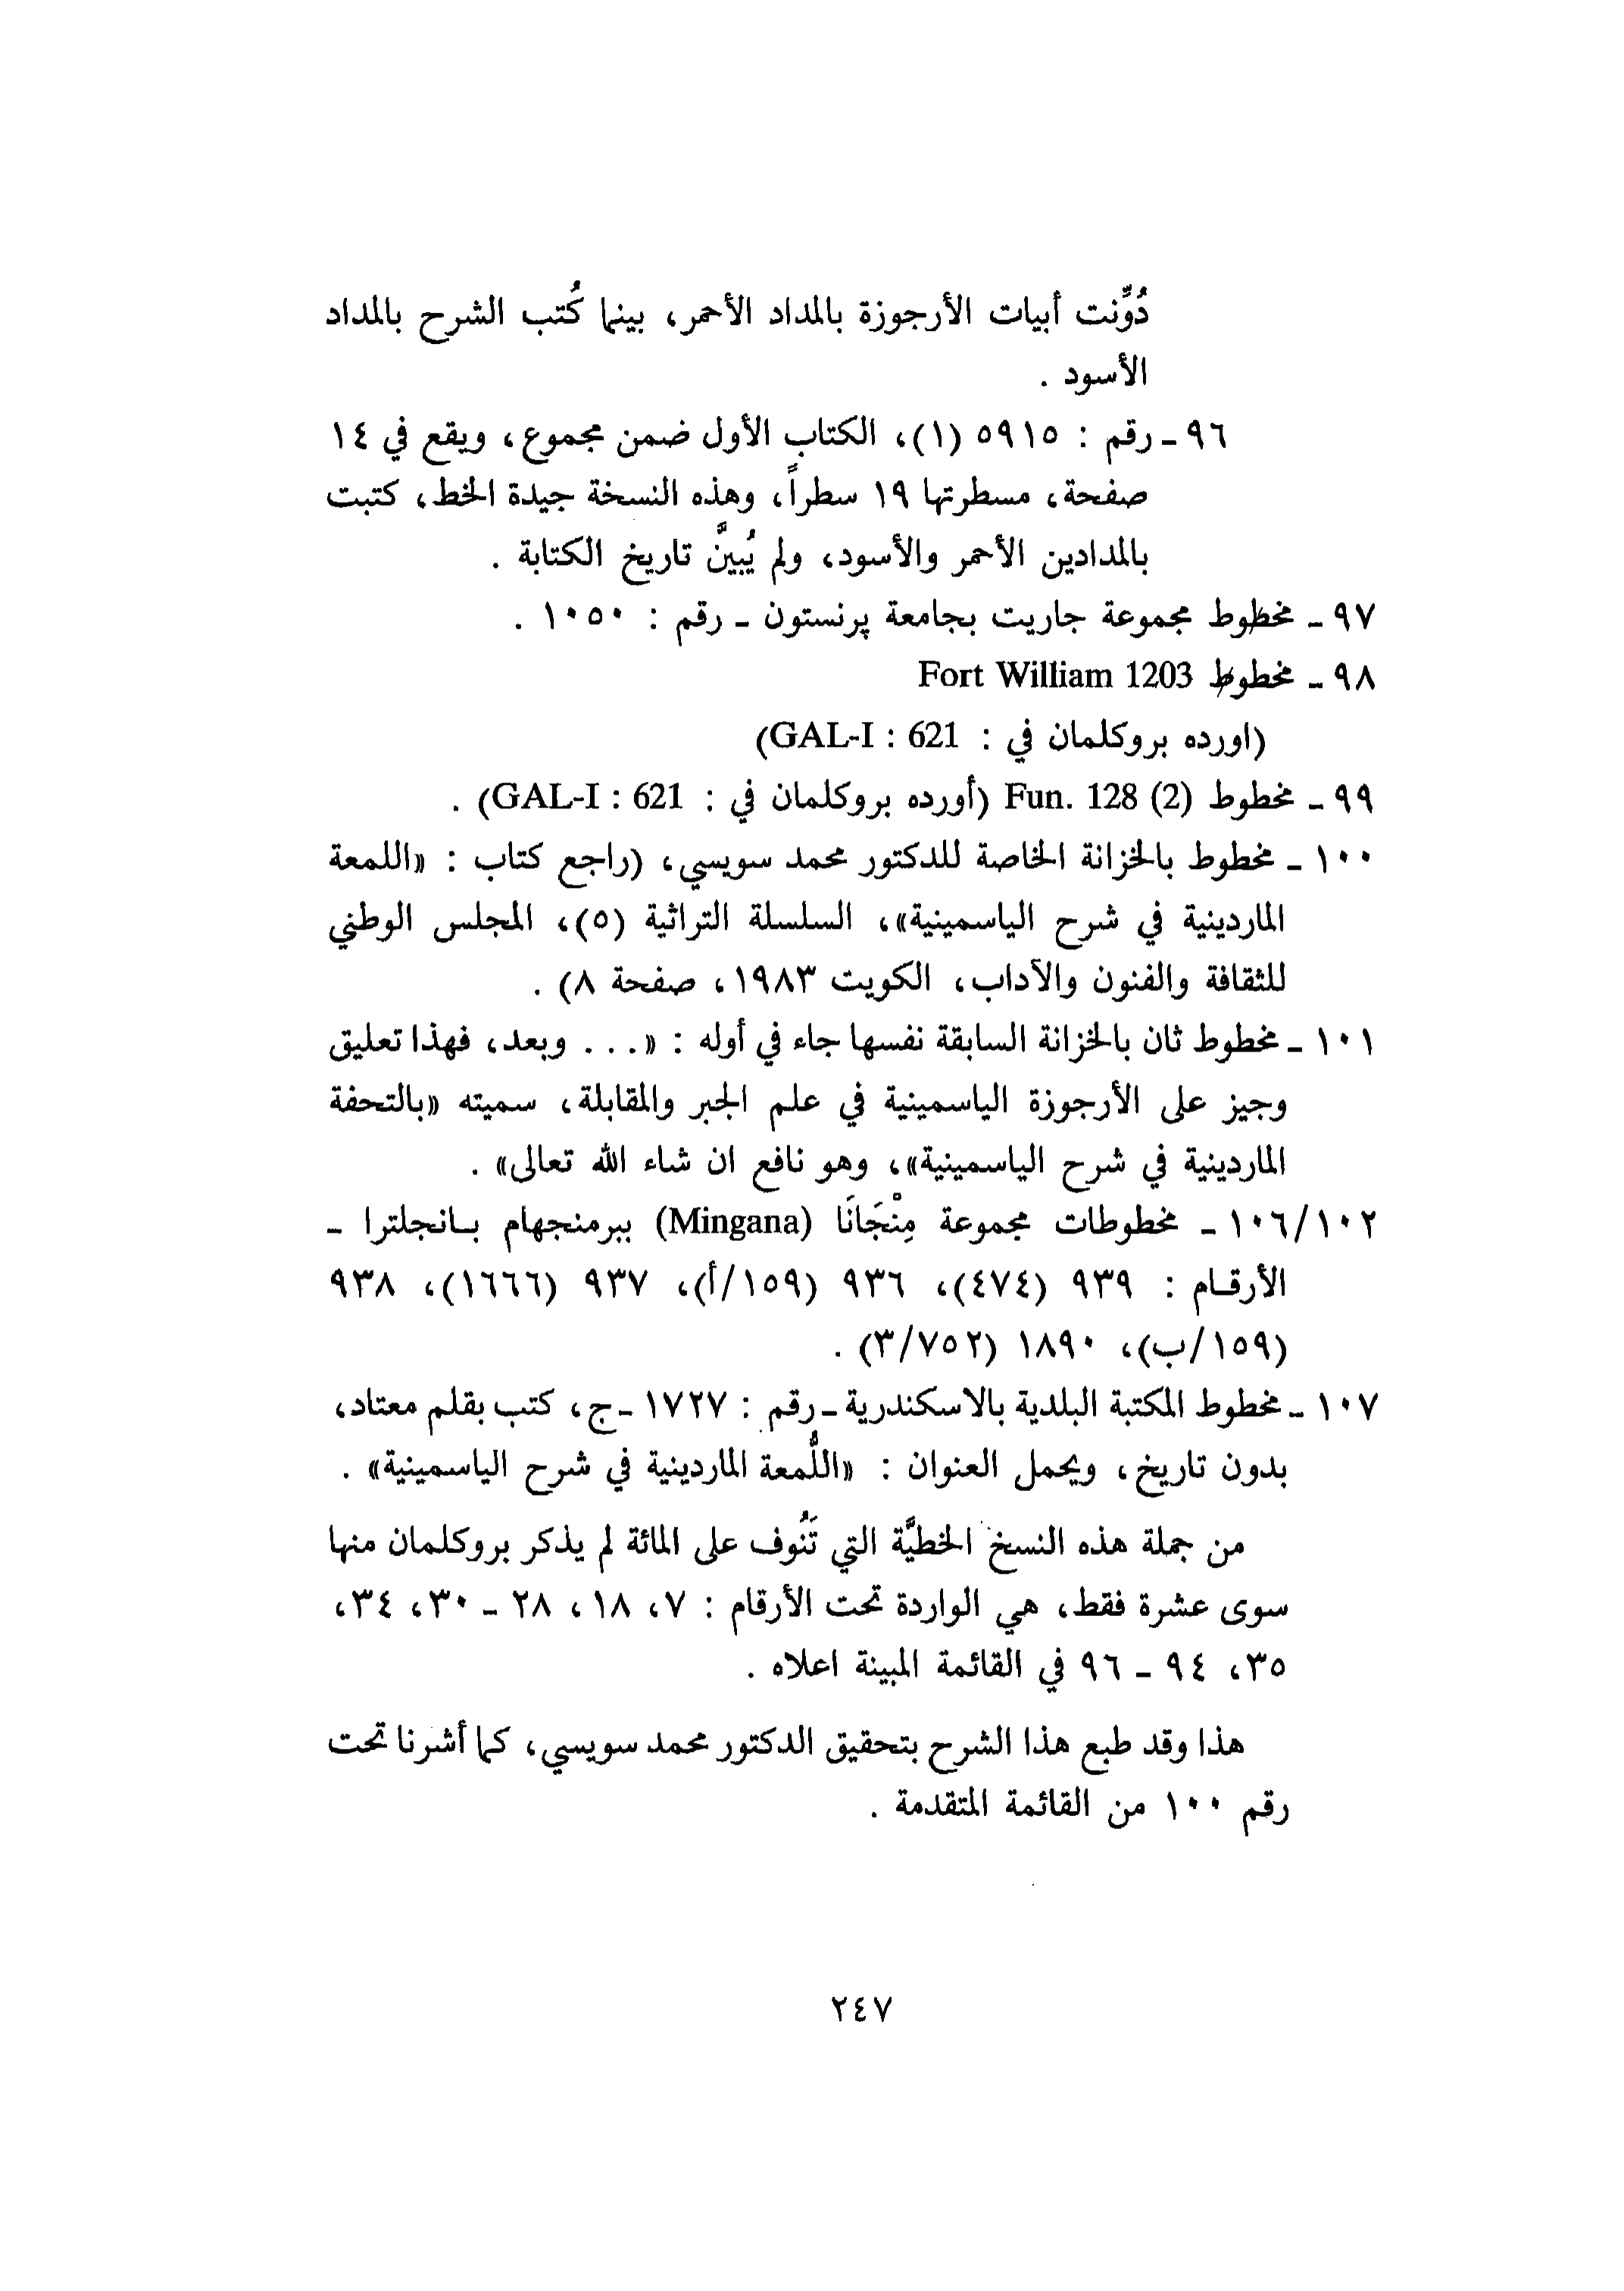 دُوِّنت أبيات الأرجوزة بالمداد الأحمر، بينما كُتب الشرح بالمداد
الأسود .
٩٦ - رقم : ٥٩١٥ (١)، الكتاب الأول ضمن مجموع، ويقع في ١٤
صفحة، مسطرتها ١٩ سطراً، وهذه النسخة جيدة الخط، كتبت
بالمدادين الأحمر والأسود، ولم يُبيَّن تاريخ الكتابة .
٩٧ - مخطوط مجموعة جاريت بجامعة پرنستون - رقم : ١٠٥٠ .
٩٨ - مخطوط Fort William 1203
(اورده بروكلمان في : GAL-I : 621)
٩٩ - مخطوط Fun. 128 (2) (أورده بروكلمان في : GAL-I : 621) .
١٠٠ - مخطوط بالخزانة الخاصة للدكتور محمد سويسي، (راجع كتاب : «اللمعة
الماردينية في شرح الياسمينية»، السلسلة التراثية (٥)، المجلس الوطني
للثقافة والفنون والآداب، الكويت ١٩٨٣، صفحة ٨) .
١٠١ - مخطوط ثان بالخزانة السابقة نفسها جاء في أوله : «... وبعد، فهذا تعليق
وجيز على الأرجوزة الياسمينية في علم الجبر والمقابلة، سميته «بالتحفة
الماردينية في شرح الياسمينية»، وهو نافع ان شاء الله تعالى» .
١٠٦/١٠٢ - مخطوطات مجموعة مِنْجَانَا (Mingana) ببرمنجهام بـانجلترا -
الأرقـام : ٩٣٩ (٤٧٤)، ٩٣٦ (١٥٩/أ)، ٩٣٧ (١٦٦٦)، ٩٣٨
(١٥٩/ب)، ١٨٩٠ (٣/٧٥٢) .
١٠٧ - مخطوط المكتبة البلدية بالاسكندرية - رقم : ١٧٢٧ - ج، كتب بقلم معتاد،
بدون تاريخ، ويحمل العنوان : «اللُّمعة الماردينية في شرح الياسمينية» .
من جملة هذه النسخ الخطيَّة التي تَنُوف على المائة لم يذكر بروكلمان منها
سوى عشرة فقط، هي الواردة تحت الأرقام : ٧، ١٨، ٢٨ - ٣٠، ٣٤،
٣٥، ٩٤ - ٩٦ في القائمة المبينة اعلاه .
هذا وقد طبع هذا الشرح بتحقيق الدكتور محمد سويسي، كما أشرنا تحت
رقم ١٠٠ من القائمة المتقدمة .
٢٤٧